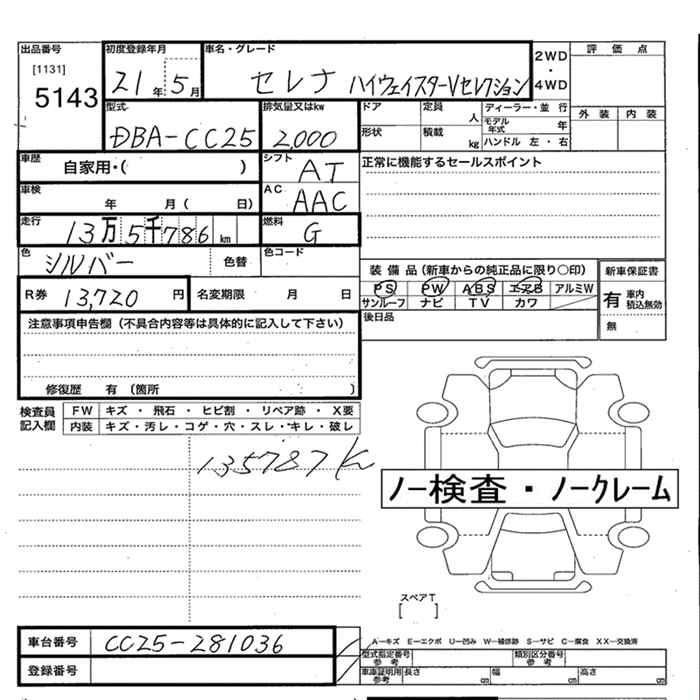 出品番号 初度登録年月 車名・グレード 2WD・4WD 評価点
[1131]
5143 21年 5月 セレナ ハイウェイスターVセレクション
型式 排気量又はkw ドア 定員 人 ディーラー・並行 外装 内装
DBA-CC25 2,000 形状 積載 kg モデル年式 年 ハンドル 左・右
車歴 自家用・( ) シフト AT 正常に機能するセールスポイント
車検 年 月( 日) AC AAC
走行 13万5千786km 燃料 G
色 シルバー 色替 色コード 装備品(新車からの純正品に限り○印) 新車保証書
R券 13,720円 名変期限 月 日 PS PW ABS エアB アルミW 有 車内積込無効
サンルーフ ナビ TV カワ 無
注意事項申告欄(不具合内容等は具体的に記入して下さい) 後日品
修復歴 有 (箇所 )
検査員記入欄 FW キズ・飛石・ヒビ割・リペア跡・X要
内装 キズ・汚レ・コゲ・穴・スレ・キレ・破レ
135787K
ノー検査・ノークレーム
スペアT
[ ]
車台番号 CC25-281036 A―キズ E―エクボ U―凹み W―補修跡 S―サビ C―腐食 XX―交換済
型式指定番号 参考 類別区分番号 参考
登録番号 車庫証明用 参考 長さ cm 幅 cm 高さ cm